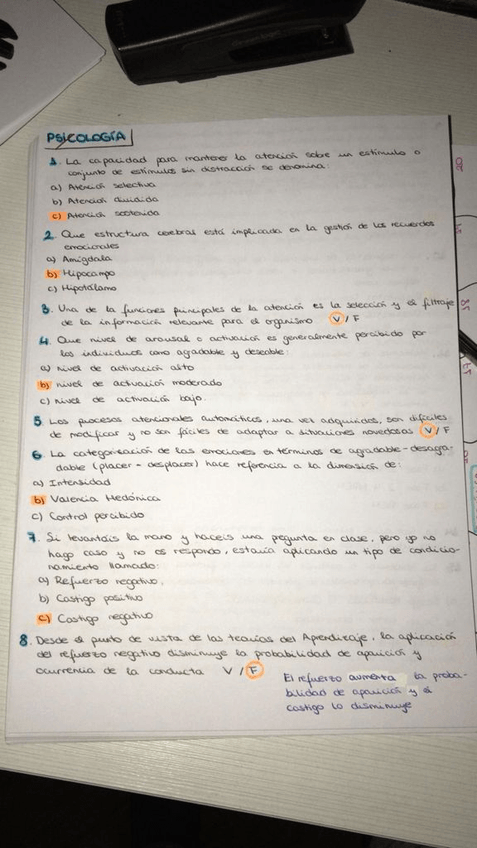 PSICOLOGÍA
1. La capacidad para mantener la atención sobre un estímulo o
conjunto de estímulos sin distracción se denomina:
a) Atención selectiva
b) Atención dividida
c) Atención sostenida
2. Que estructura cerebral está implicada en la gestión de los recuerdos
emocionales
a) Amígdala
b) Hipocampo
c) Hipotálamo
3. Una de la funciones principales de la atención es la selección y el filtraje
de la información relevante para el organismo V / F
4. Que nivel de arousal o activación es generalmente percibido por
los individuos como agradable y deseable:
a) Nivel de activación alto
b) nivel de activación moderado
c) Nivel de activación bajo.
5. Los procesos atencionales automáticos, una vez adquiridos, son difíciles
de modificar y no son fáciles de adaptar a situaciones novedosas V / F
6. La categorización de las emociones en términos de agradable-desagra-
dable (placer - desplacer) hace referencia a la dimensión de:
a) Intensidad
b) Valencia Hedónica
c) Control percibido
7. Si levantáis la mano y hacéis una pregunta en clase, pero yo no
hago caso y no os respondo, estaría aplicando un tipo de condicio-
namiento llamado:
a) Refuerzo negativo.
b) Castigo positivo
c) Castigo negativo
8. Desde el punto de vista de las teorías del Aprendizaje, la aplicación
del refuerzo negativo disminuye la probabilidad de aparición y
ocurrencia de la conducta V / F
El refuerzo aumenta la proba-
bilidad de aparición y el
castigo lo disminuye